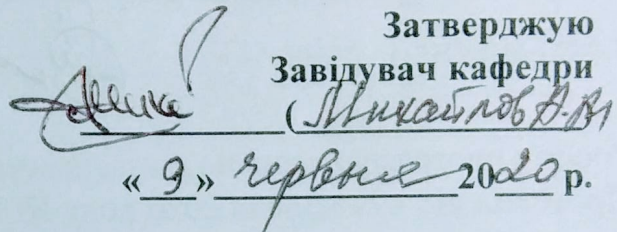 Затверджую
Завідувач кафедри
(Михайлов А.В)
«9» червня 2020 р.